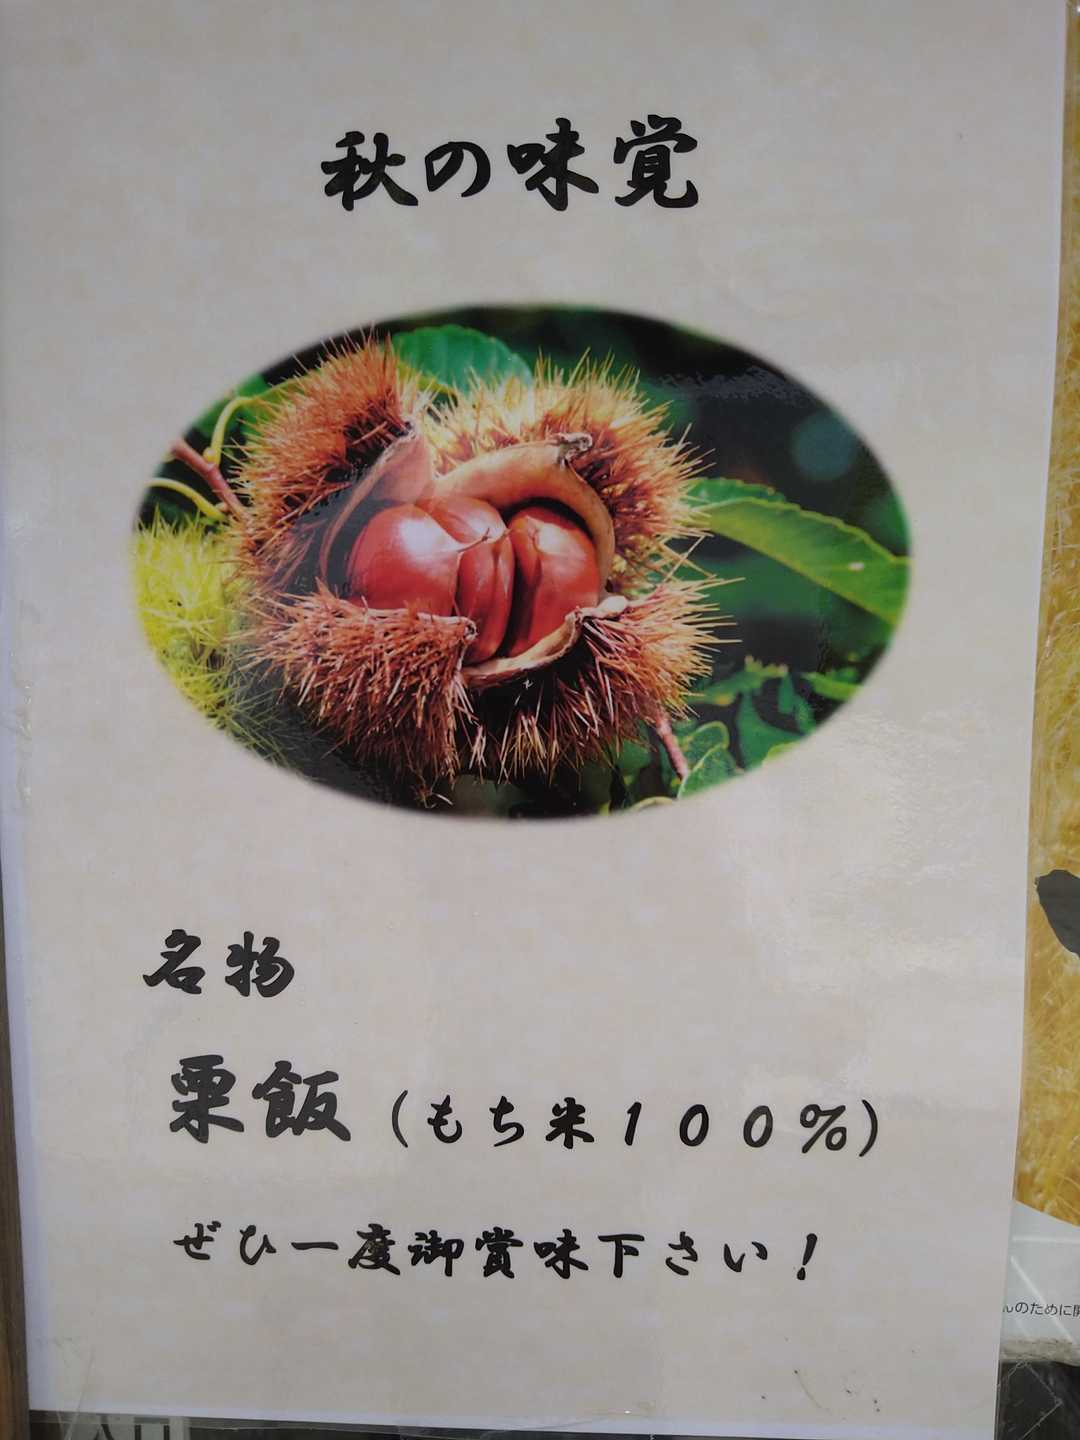 秋の味覚
名物
栗飯 (もち米１００％)
ぜひ一度御賞味下さい！
んのために